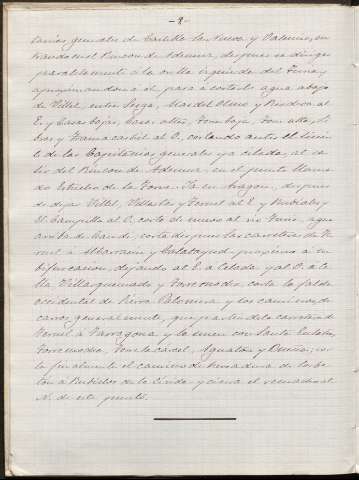 -2-
tanías generales de Castilla la Nueva y Valencia, en
trando en el Rincon de Ademuz, despues se dirige
paralelamente a la orilla izquierda del Turia y
aproximandose a el para a cortarlo agua abajo
de Villel, entre Siega, Mas del Olmo y Riodeva al
E. y Casas bajas, Casas altas, Torre baja, Torre alta, Li
bros y Tramacastiel al O., cortando antes el limi
te de las Capitanias generales ya citadas, al sa
lir del Rincon de Ademuz, en el punto llama
do Estrecho de la Torre. Ya en Aragon, despues
de dejar Villel, Villastar y Teruel al E. y Rubiales y
El Campillo al O., corta de nuevo al rio Turia, agua
arriba de Caudé, corta despues las carreteras de Te
ruel a Albarracin y Calatayud, proximo a su
bifurcacion, dejando al E. a Celada y al O. a Ce
lla, Villarquemado y Torremocha, corta la falda
occidental de Sierra Palomera y los caminos de
carros, generalmente, que parten de la carretera de
Teruel a Tarragona y la unen con Santa Eulalia,
Torremocha, Torre la cárcel, Aguaton y Bueña, cor
ta finalmente el camino de herradura de
a Rubielos de la Cérida y cierra el recuadro al
N. de este punto.